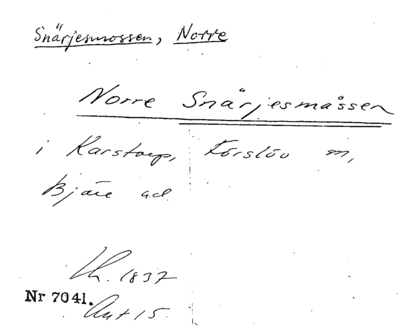 Snärjesmossen, Norre
Norre Snärjesmåssen
i Karstorp, Förslöv m,
Bjäre ad.
Lh. 1837
Nr 7041.
Akt 15.